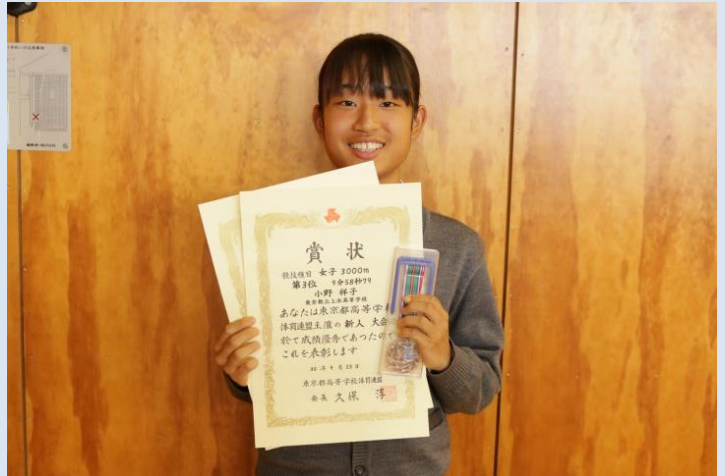 賞状
競技種目 女子 3000m
第3位 9分58秒79
小野 祥子
東京都立上水高等学校
あなたは東京都高等学校
体育連盟主催の 新人 大会
於て成績優秀であつたので
これを表彰します
30年9月23日
東京都高等学校体育連盟
会長 久保 淳